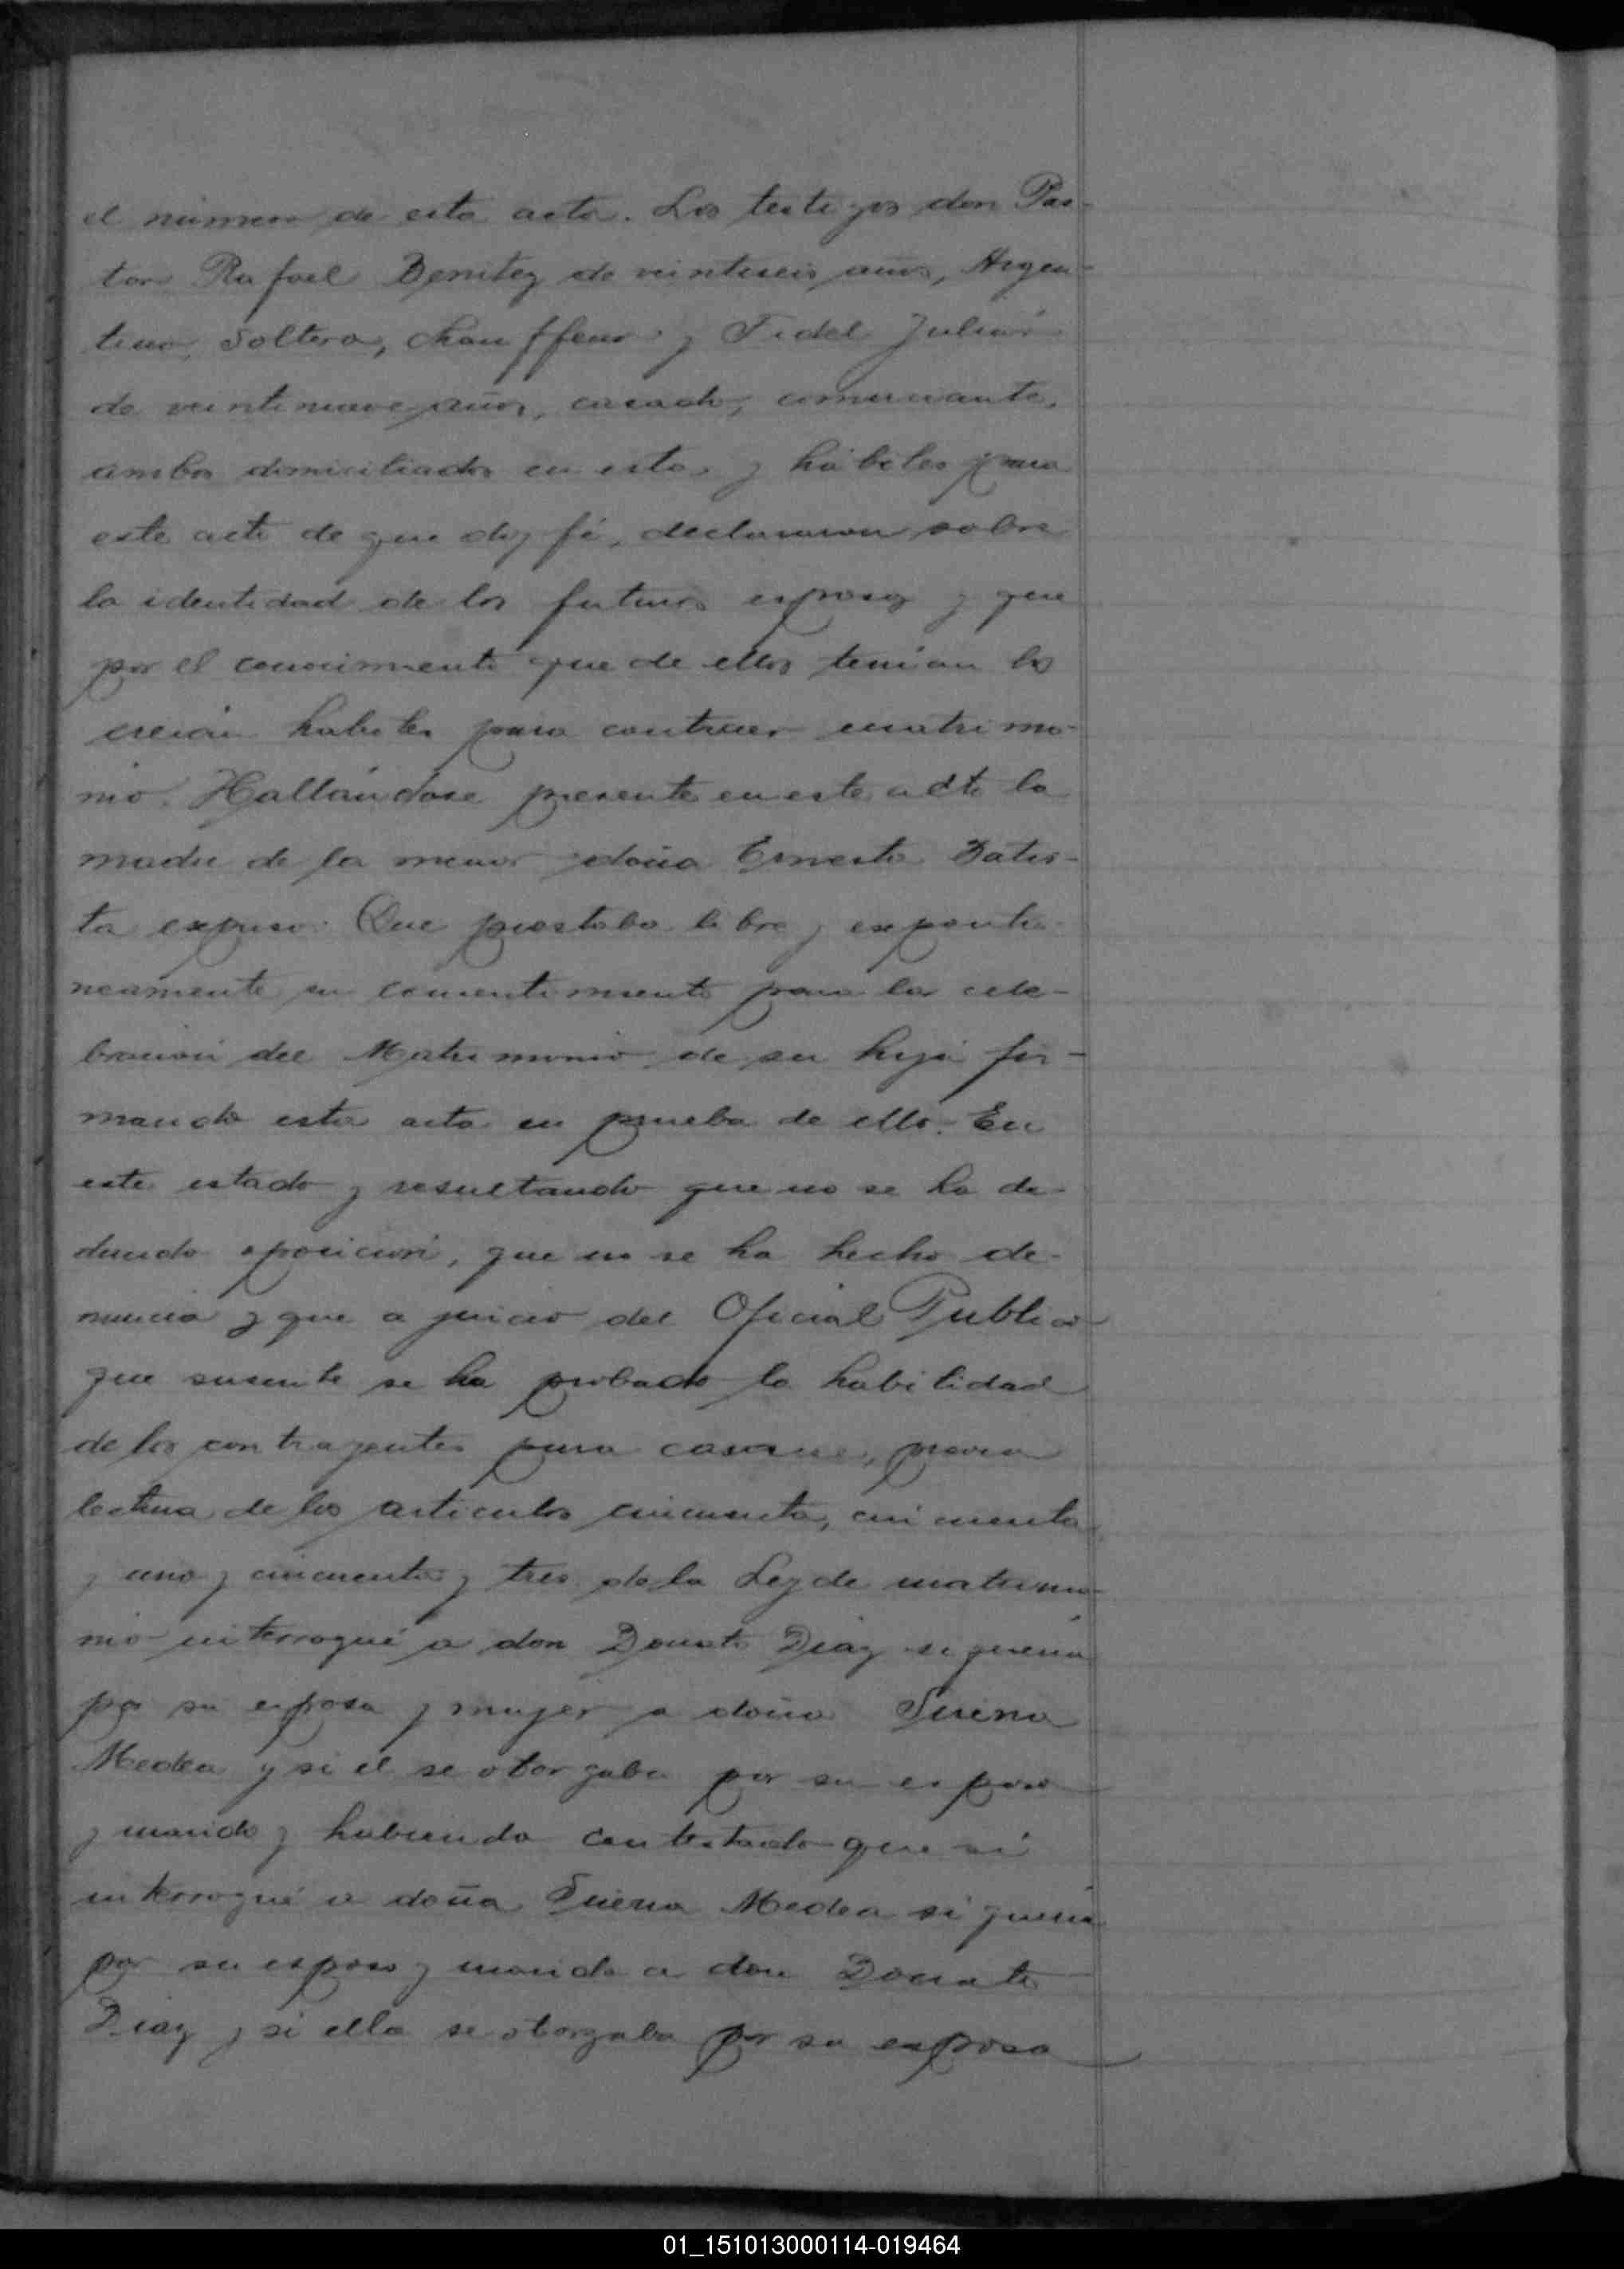 el número de esta acta. Los testigos don Pas-
tor Rafael Benitez de veintiseis años, Argen-
tino, Soltero, chauffeur y Fidel Julián
de veintinueve años, casado, comerciante,
ambos domiciliados en esta y hábiles para
este acto de que doy fé, declararon sobre
la identidad de los futuros esposos y que
por el conocimiento que de ellos tenían los
creían habiles para contraer matrimo-
nio. Hallándose presente en este acto la
madre de la menor doña Ernesta Batis-
ta expuso: Que prestaba libre y expontá-
neamente su consentimiento para la cele-
bración del Matrimonio de su hija fir-
mando esta acta en prueba de ello. En
este estado y resultando que no se ha de-
ducido oposición, que no se ha hecho de-
nuncia y que a juicio del Oficial Publico
que suscribe se ha probado la habilidad
de los contrayentes para casarse, previa
lectura de los articulos cincuenta, cincuenta
y uno y cincuenta y tres de la Ley de matrimo-
nio interrogué a don Donato Diaz si quería
por su esposa y mujer a doña
Medea y si el se otorgaba por su esposo
y marido y habiendo contestado que sí
interrogué a doña Medea si quería
por su esposo y marido a don Donato
Diaz y si ella se otorgaba por su esposa
01_151013000114-019464